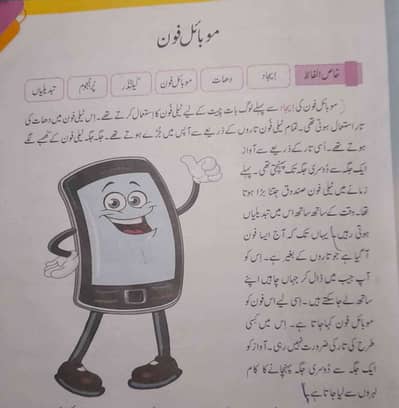 موبائل فون
خاص الفاظ
ایجاد
دھات
موبائل فون
کیلنڈر
پُرہجوم
تبدیلیاں
موبائل فون کی ایجاد سے پہلے لوگ بات چیت کے لیے ٹیلی فون کا استعمال کرتے تھے۔ اِس ٹیلی فون میں دھات کی
تار استعمال ہوتی تھی۔ تمام ٹیلی فون تاروں کے ذریعے سے آپس میں جُڑے ہوتے تھے۔ جگہ جگہ ٹیلی فون کے کھمبے لگے
ہوتے تھے۔ اُسی تار کے ذریعے سے آواز
ایک جگہ سے دُوسری جگہ تک پہنچتی تھی۔ پہلے
زمانے میں ٹیلی فون صندوق جتنا بڑا ہوتا
تھا۔ وقت کے ساتھ ساتھ اس میں تبدیلیاں
ہوتی رہیں یہاں تک کہ آج ایسا فون
آ گیا ہے جو تاروں کے بغیر ہے۔ اِس کو
آپ جیب میں ڈال کر جہاں چاہیں اپنے
ساتھ لے جا سکتے ہیں۔ اِسی لیے اس فون کو
موبائل فون کہا جاتا ہے۔ اِس میں کسی
طرح کی تار کی ضرورت نہیں رہی۔ آواز کو
ایک جگہ سے دُوسری جگہ پہنچانے کا کام
لہروں سے لیا جاتا ہے